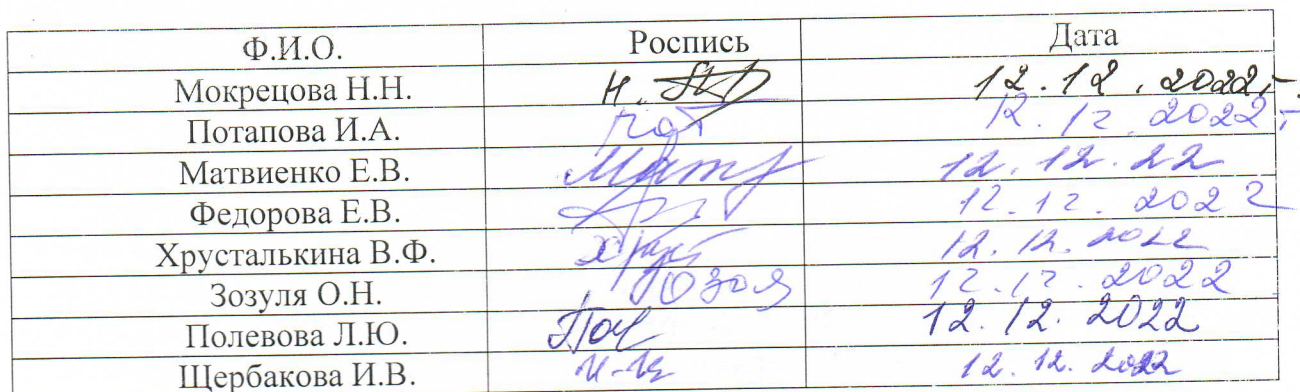 Ф.И.О. Роспись Дата
Мокрецова Н.Н. 12.12.2022г.
Потапова И.А. Пот 12.12.2022г
Матвиенко Е.В. 12.12.22
Федорова Е.В. 12.12.2022
Хрусталькина В.Ф. 12.12.2022
Зозуля О.Н. 12.12.2022
Полевова Л.Ю. Пол 12.12.2022
Щербакова И.В. 12.12.2022